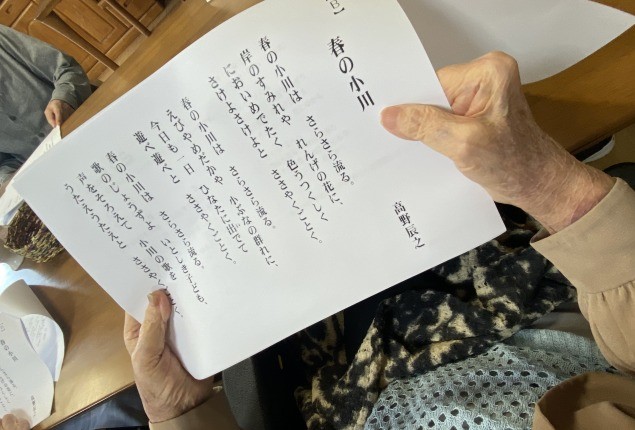 春の小川
高野辰之
春の小川は　さらさら流る。
岸のすみれや　れんげの花に、
においめでたく　色うつくしく
さけよさけよと　ささやくごとく。
春の小川は　さらさら流る。
えびやめだかや　小ぶなの群れに、
今日も一日　ひなたに出でて
遊べ遊べと　ささやくごとく。
春の小川は　さらさら流る。
歌のじょうずよ　いとしき子ども、
声をそろえて　小川の歌を
うたえうたえと　ささやく